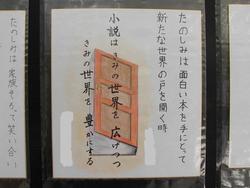 たのしみは面白い本を手にとって
新たな世界の戸を開く時
小説はきみの世界を広げつつ
きみの世界を豊かにする
たのしみは家族そろって笑い合い